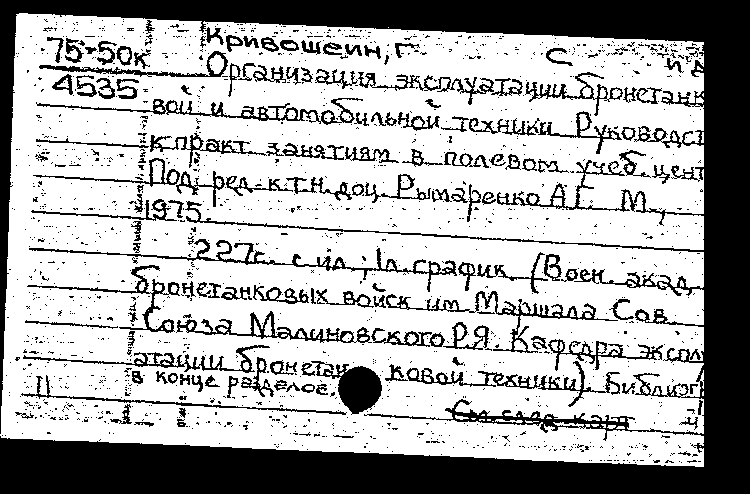 75-50к
4535
Кривошеин, Г. С. и д
Организация эксплуатации бронетанк
вой и автомобильной техники Руководст
к практ. занятиям в полевом учеб. цент
Под ред. к.т.н. доц. Рымаренко А.Г. М.,
1975.
227с. с ил.; 1л. график. (Воен. акад.
бронетанковых войск им Маршала Сов.
Союза Малиновского Р.Я. Кафедра экспл
атации бронетан ковой техники). Библиогр
в конце разделов.
11
См. след. карт ч